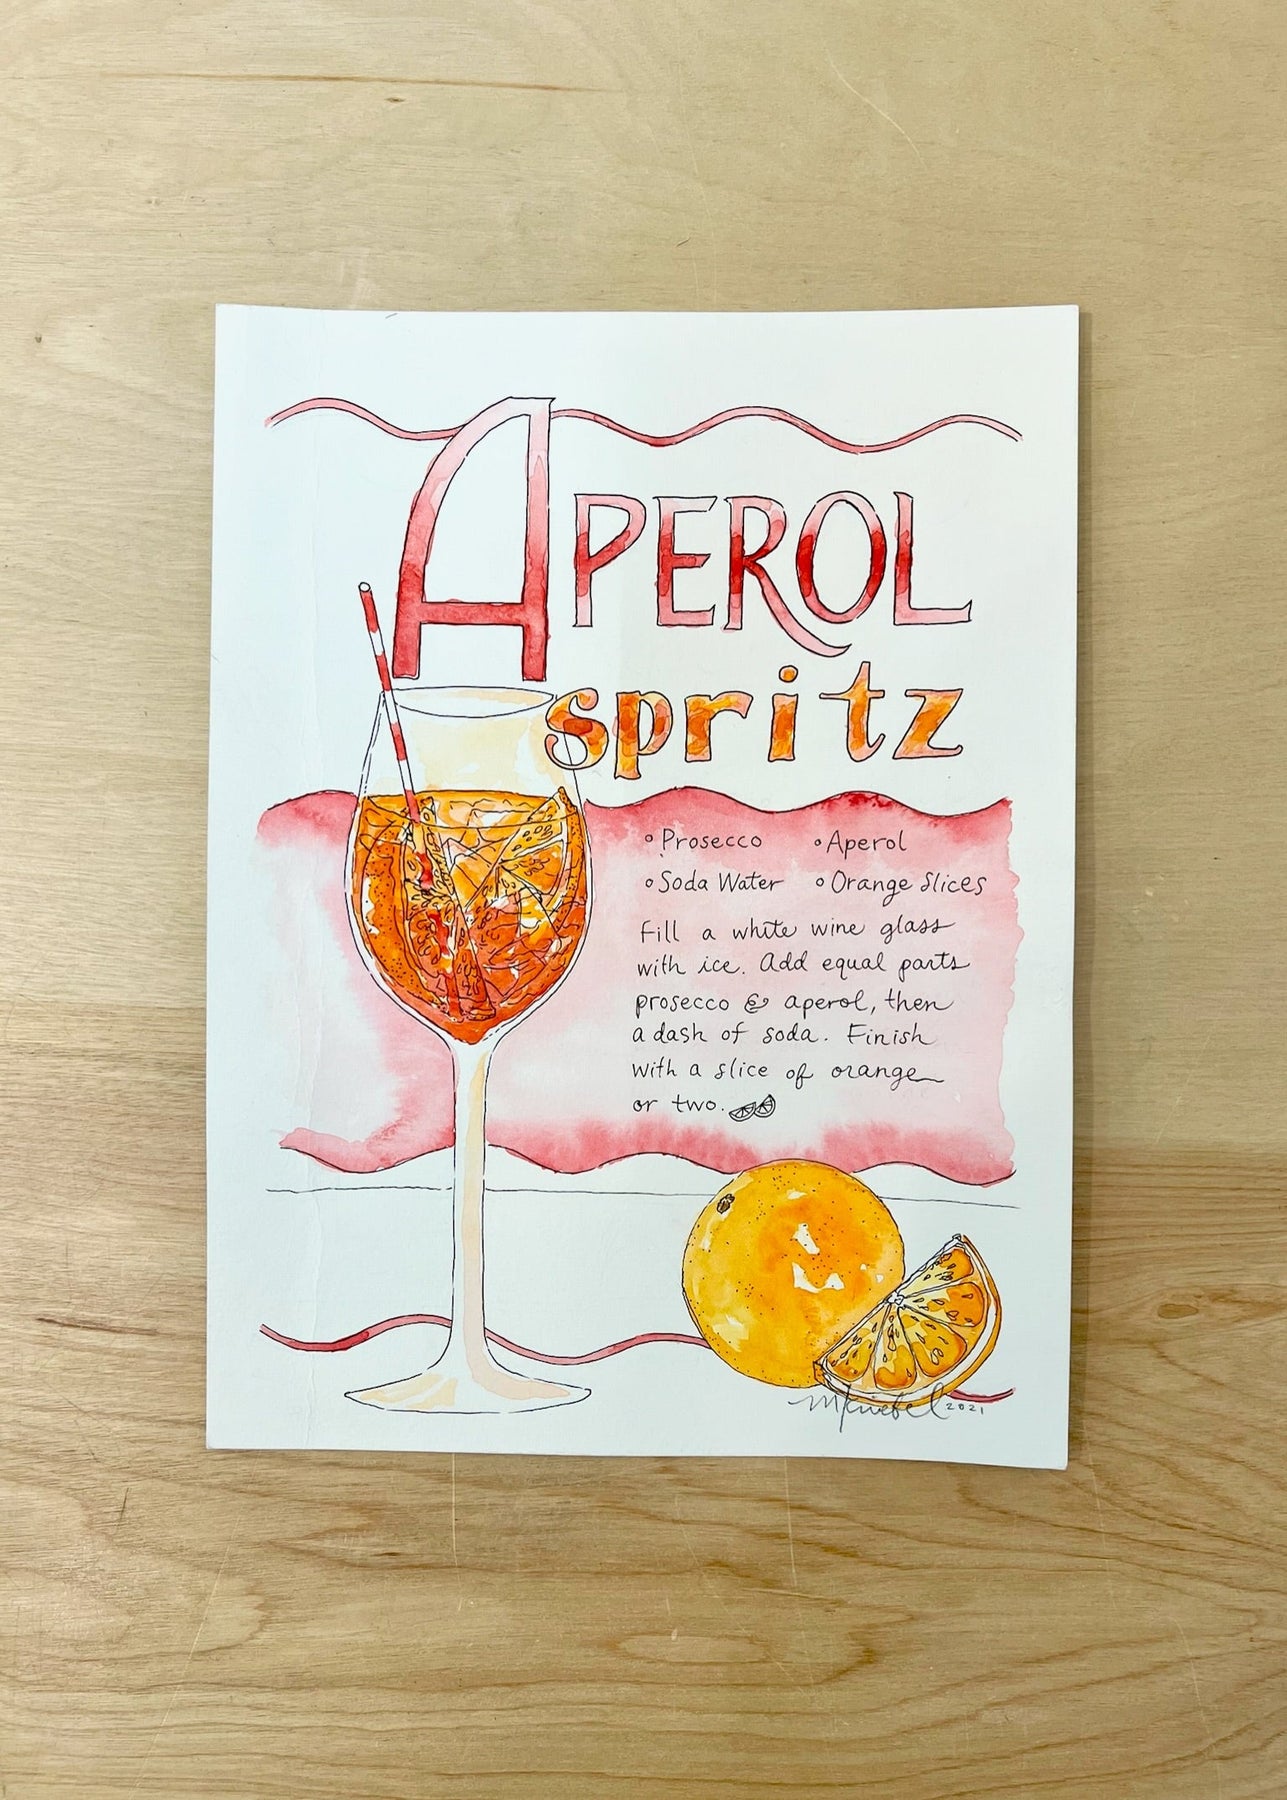 APEROL
spritz
◦ Prosecco ◦ Aperol
◦ Soda Water ◦ Orange Slices
Fill a white wine glass
with ice. Add equal parts
prosecco & aperol, then
a dash of soda. Finish
with a slice of orange
or two.
2021